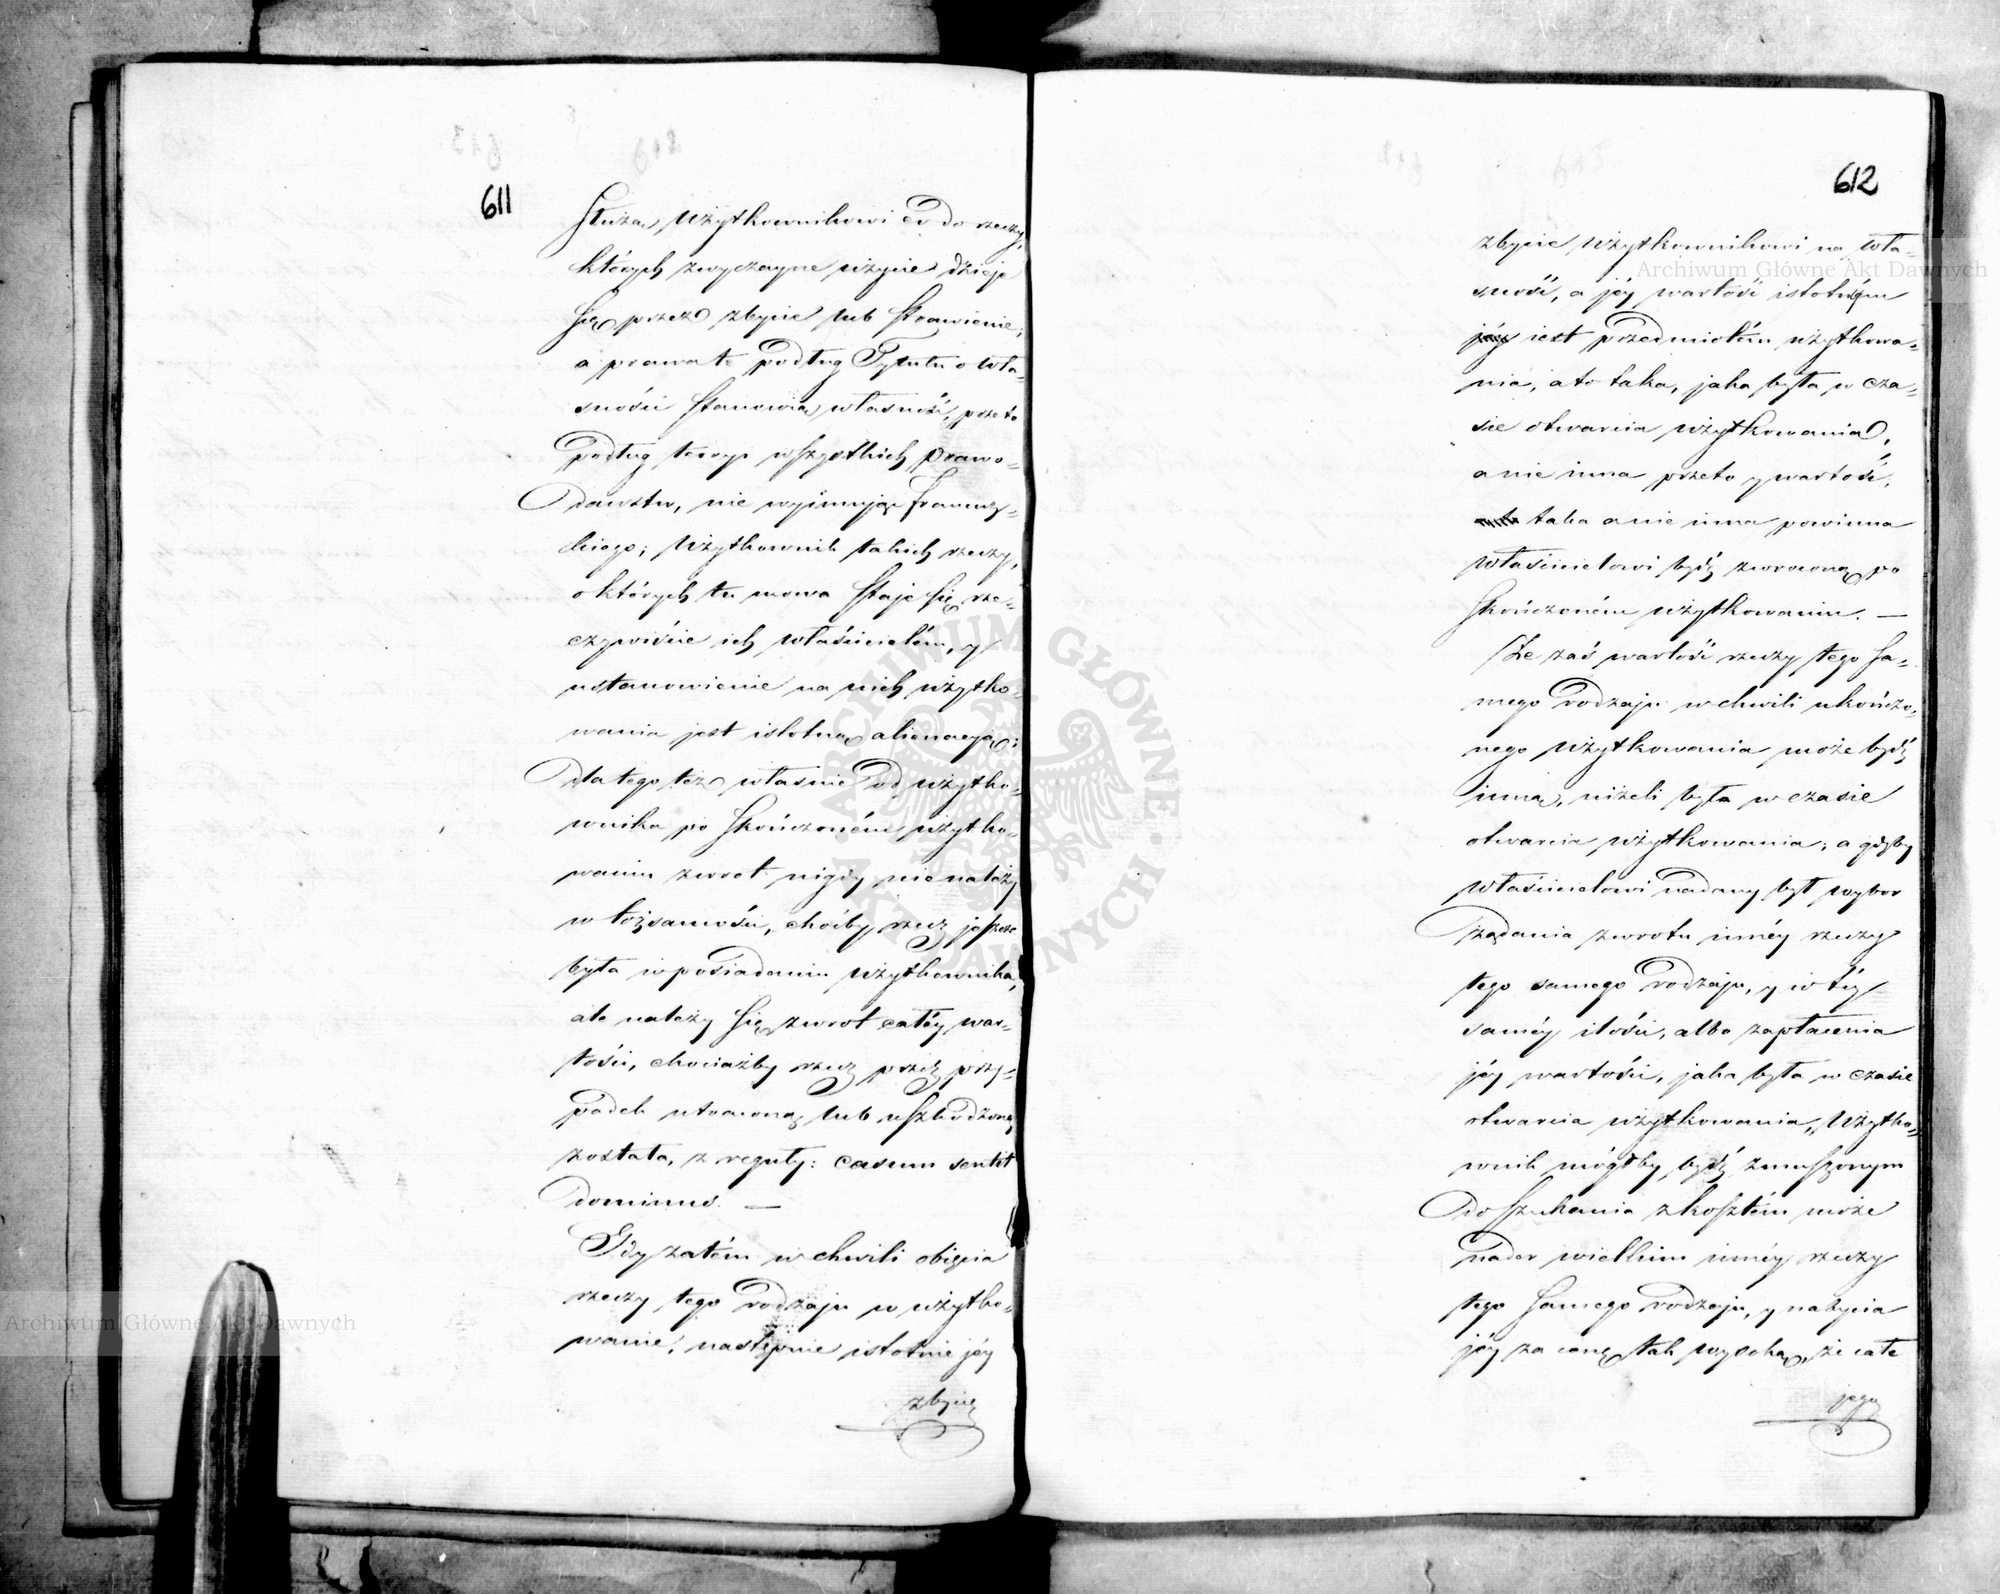 611
służą Użytkownikowi co do rzeczy,
których zwyczayne użycie dzieje
się przez zbycie lub strawienie;
a prawa te podług Tytułu o wła-
sności stanowią własność, przeto
podług teoryi wszystkich prawo-
dawstw, nie wyimując francuz-
kiego; Użytkownik takich rzeczy,
o których tu mowa staje się rze-
czywiście ich właścicielém, y
ustanowienie na nich użytko-
wania jest istotną alienacyą;
dla tego też właśnie od użytko-
wnika po skończoném użytko-
waniu zwrot nigdy nienależy
w tożsamości, choćby rzecz jeszcze
była w posiadaniu użytkownika,
ale należy się zwrot całéy war-
tości, chociażby rzecz przez przy-
padek utraconą lub uszkodzoną
została, z reguły: casum sentit
dominus. —
Gdy zatém w chwili obięcia
rzeczy tego rodzaju w użytko-
wanie, następnie istotnie jéy
zbycie
612
zbycie użytkownikowi na wła-
sność, a jéy wartość istotnym
jest przedmiotém użytkowa-
nia, a to taka, jaka była w cza-
sie otwarcia użytkowania,
a nie inna przeto y wartość,
taka a nie inna powinna
właścicielowi bydź zwróconą po
skończoném użytkowaniu. —
Że zaś wartość rzeczy tego sa-
mego rodzaju w chwili ukończo-
nego użytkowania może bydź
inną, niżeli była w czasie
otwarcia użytkowania; a gdyby
właścicielowi nadany był wybor
żądania zwrotu innéy rzeczy
tego samego rodzaju, y w téy
saméy ilości, albo zapłacenia
jéy wartości, jaka była w czasie
otwarcia użytkowania, Użytko-
wnik mógłby bydź zmuszonym
do szukania z kosztém może
nader wielkim innéy rzeczy
tego samego rodzaju, y nabycia
jéy za cenę tak wysoką, że całe
jego
Archiwum Główne Akt Dawnych
Archiwum Główne Akt Dawnych
ARCHIWUM GŁÓWNE AKT DAWNYCH